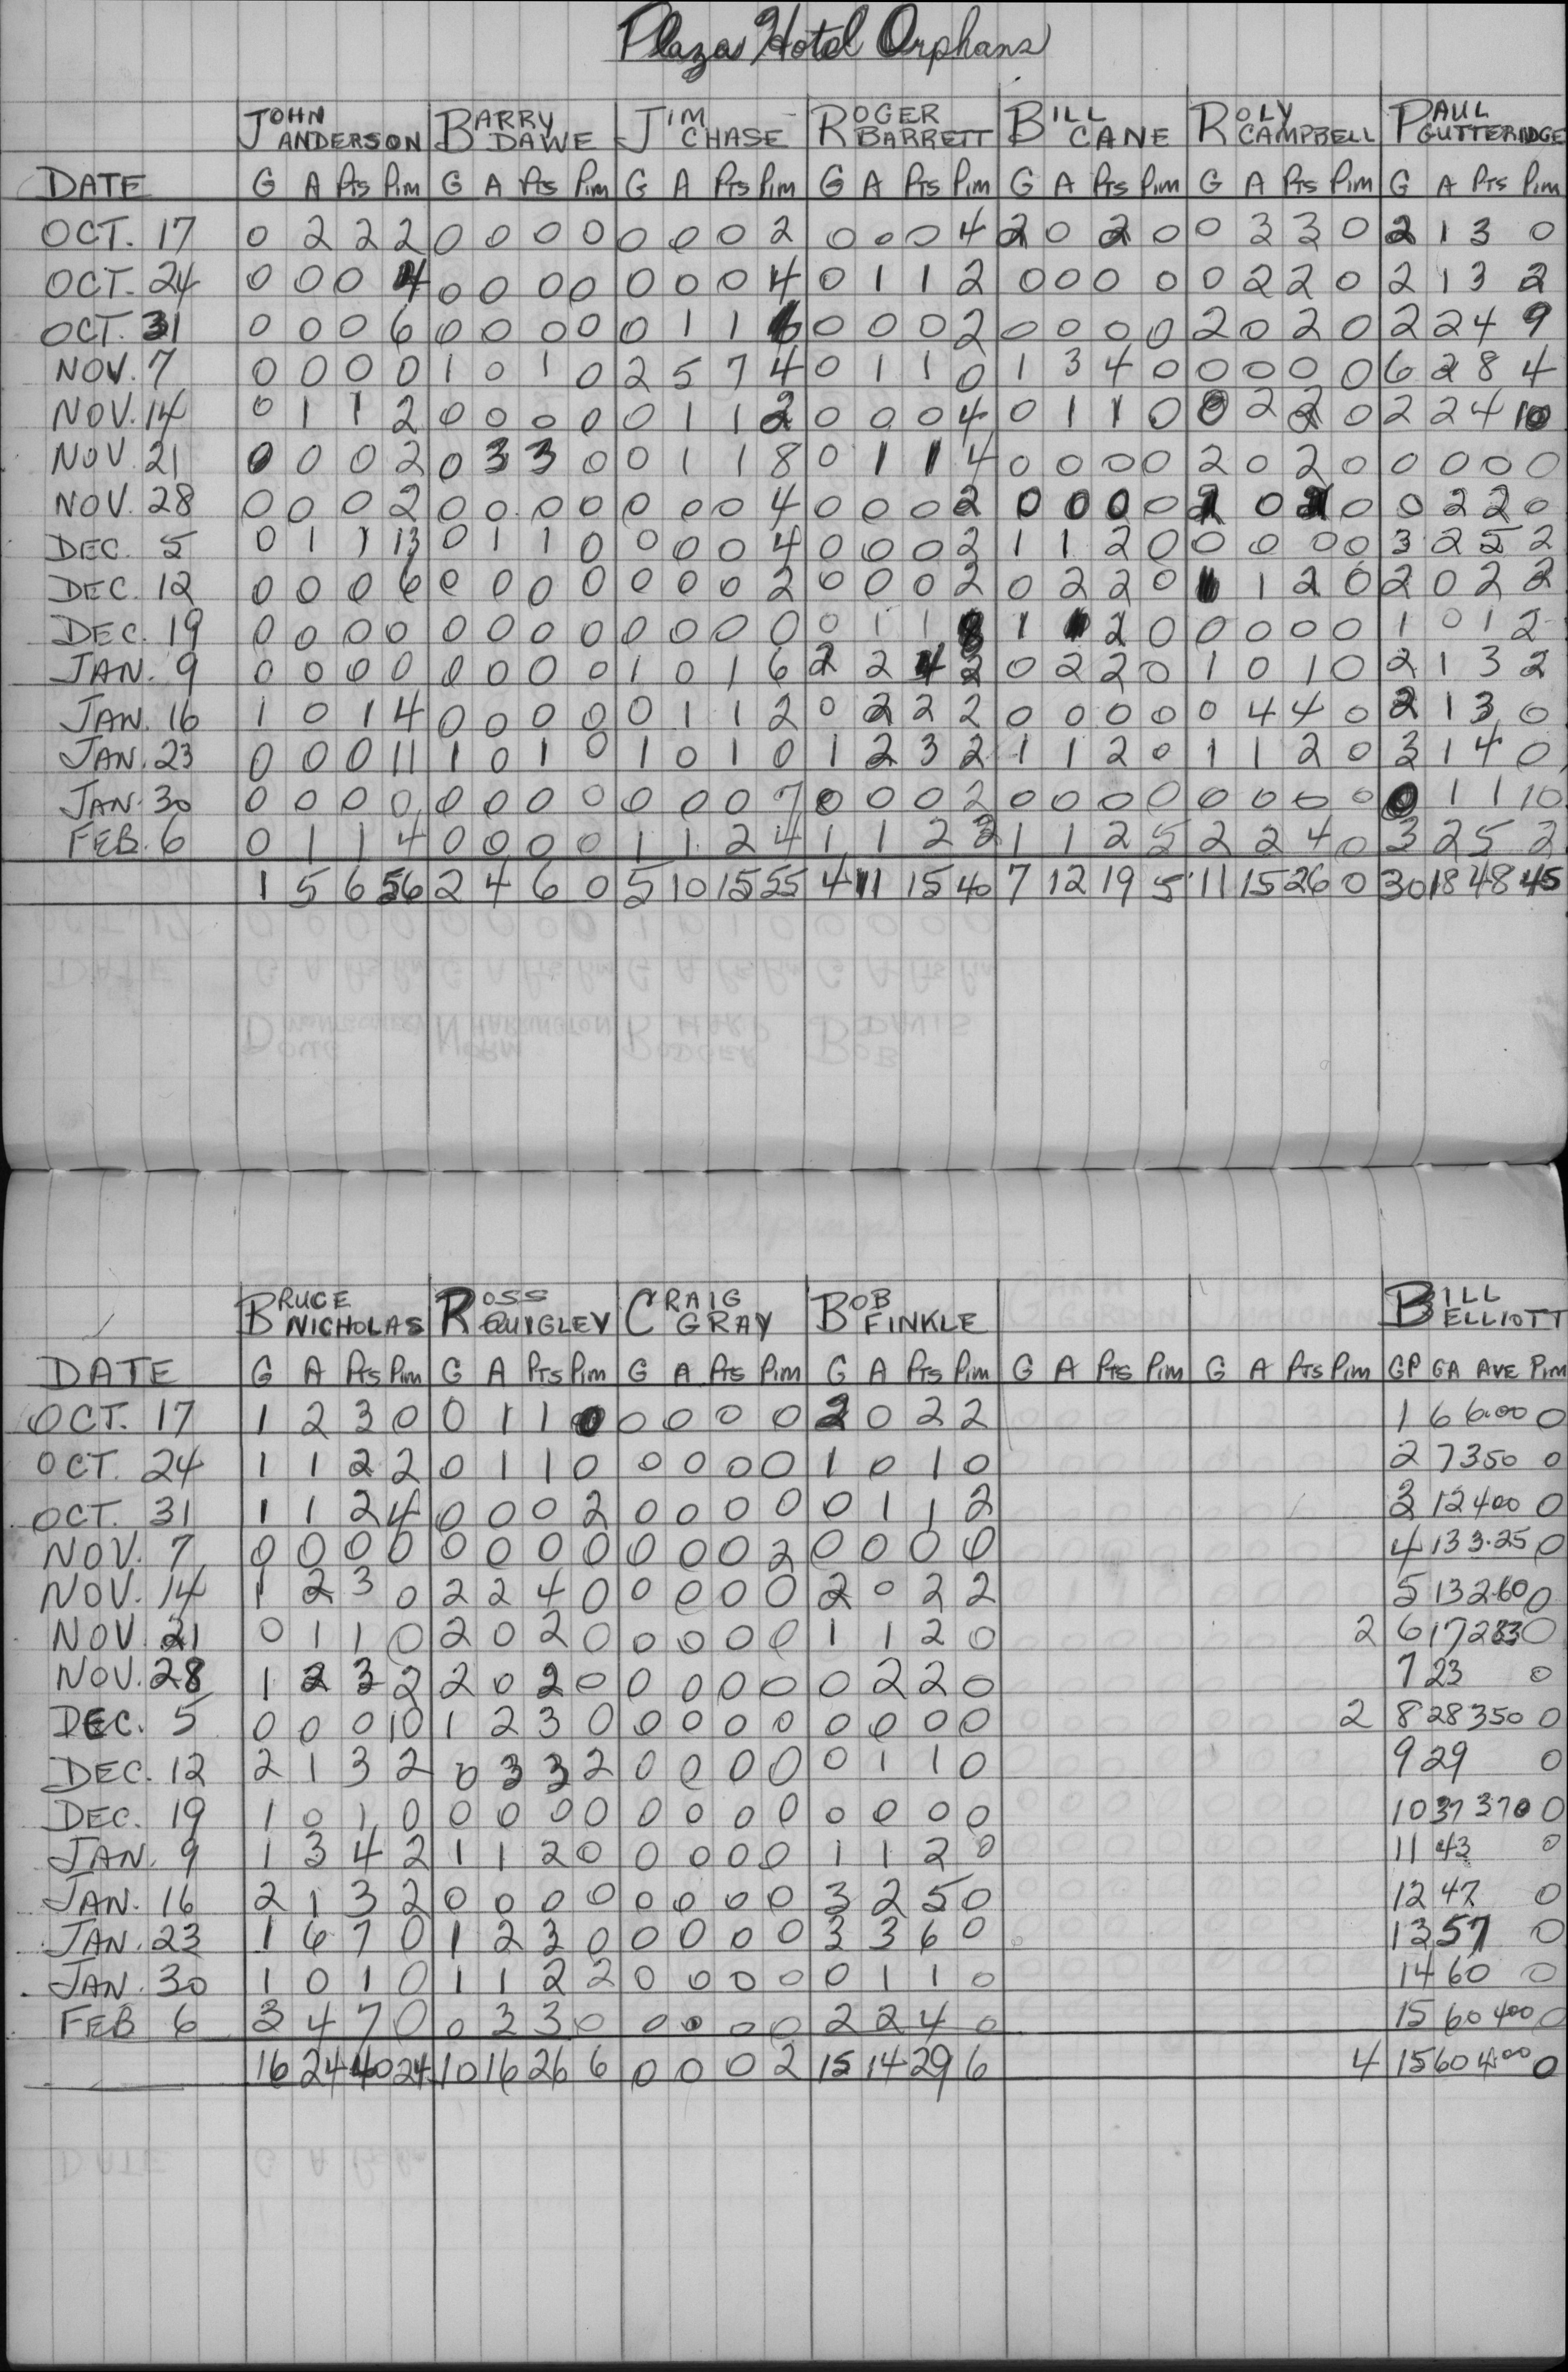 Plaza Hotel Orphans
JOHN ANDERSON BARRY DAWE JIM CHASE ROGER BARRETT BILL CANE ROLY CAMPBELL PAUL GUTTERIDGE
DATE G A Pts Pim G A Pts Pim G A Pts Pim G A Pts Pim G A Pts Pim G A Pts Pim G A Pts Pim
OCT. 17 0 2 2 2 0 0 0 0 0 0 0 2 0 0 0 4 2 0 2 0 0 3 3 0 2 1 3 0
OCT. 24 0 0 0 4 0 0 0 0 0 0 0 4 0 1 1 2 0 0 0 0 0 2 2 0 2 1 3 2
OCT. 31 0 0 0 6 0 0 0 0 0 1 1 6 0 0 0 2 0 0 0 0 2 0 2 0 2 2 4 9
NOV. 7 0 0 0 0 1 0 1 0 2 5 7 4 0 1 1 0 1 3 4 0 0 0 0 0 6 2 8 4
NOV. 14 0 1 1 2 0 0 0 0 0 1 1 2 0 0 0 4 0 1 1 0 0 2 2 0 2 2 4 10
NOV. 21 0 0 0 2 0 3 3 0 0 1 1 8 0 1 1 4 0 0 0 0 2 0 2 0 0 0 0 0
NOV. 28 0 0 0 2 0 0 0 0 0 0 0 4 0 0 0 2 0 0 0 0 2 0 2 0 0 2 2 0
DEC. 5 0 1 1 13 0 1 1 0 0 0 0 4 0 0 0 2 1 1 2 0 0 0 0 0 3 2 5 2
DEC. 12 0 0 0 6 0 0 0 0 0 0 0 2 0 0 0 2 0 2 2 0 1 1 2 0 2 0 2 2
DEC. 19 0 0 0 0 0 0 0 0 0 0 0 0 0 1 1 8 1 1 2 0 0 0 0 0 1 0 1 2
JAN. 9 0 0 0 0 0 0 0 0 1 0 1 6 2 2 4 2 0 2 2 0 1 0 1 0 2 1 3 2
JAN. 16 1 0 1 4 0 0 0 0 0 1 1 2 0 2 2 2 0 0 0 0 0 4 4 0 2 1 3 0
JAN. 23 0 0 0 11 1 0 1 0 1 0 1 0 1 2 3 2 1 1 2 0 1 1 2 0 3 1 4 0
JAN. 30 0 0 0 0 0 0 0 0 0 0 0 7 0 0 0 2 0 0 0 0 0 0 0 0 0 1 1 10
FEB. 6 0 1 1 4 0 0 0 0 1 1 2 4 1 1 2 2 1 1 2 5 2 2 4 0 3 2 5 2
1 5 6 56 2 4 6 0 5 10 15 55 4 11 15 40 7 12 19 5 11 15 26 0 30 18 48 45
BRUCE NICHOLAS ROSS QUIGLEY CRAIG GRAY BOB FINKLE BILL ELLIOTT
DATE G A Pts Pim G A Pts Pim G A Pts Pim G A Pts Pim G A Pts Pim G A Pts Pim GP GA AVE Pim
OCT. 17 1 2 3 0 0 1 1 0 0 0 0 0 2 0 2 2 1 6 6.00 0
OCT. 24 1 1 2 2 0 1 1 0 0 0 0 0 1 0 1 0 2 7 350 0
OCT. 31 1 1 2 4 0 0 0 2 0 0 0 0 0 1 1 2 3 12 400 0
NOV. 7 0 0 0 0 0 0 0 0 0 0 0 2 0 0 0 0 4 13 3.25 0
NOV. 14 1 2 3 0 2 2 4 0 0 0 0 0 2 0 2 2 5 13 260 0
NOV. 21 0 1 1 0 2 0 2 0 0 0 0 0 1 1 2 0 2 6 17 283 0
NOV. 28 1 2 3 2 2 0 2 0 0 0 0 0 0 2 2 0 7 23 0
DEC. 5 0 0 0 10 1 2 3 0 0 0 0 0 0 0 0 0 2 8 28 350 0
DEC. 12 2 1 3 2 0 3 3 2 0 0 0 0 0 1 1 0 9 29 0
DEC. 19 1 0 1 0 0 0 0 0 0 0 0 0 0 0 0 0 10 37 370 0
JAN. 9 1 3 4 2 1 1 2 0 0 0 0 0 1 1 2 0 11 43 0
JAN. 16 2 1 3 2 0 0 0 0 0 0 0 0 3 2 5 0 12 47 0
JAN. 23 1 6 7 0 1 2 3 0 0 0 0 0 3 3 6 0 13 57 0
JAN. 30 1 0 1 0 1 1 2 2 0 0 0 0 0 1 1 0 14 60 0
FEB 6 3 4 7 0 0 3 3 0 0 0 0 0 2 2 4 0 15 60 400 0
16 24 40 24 10 16 26 6 0 0 0 2 15 14 29 6 4 15 60 4.00 0